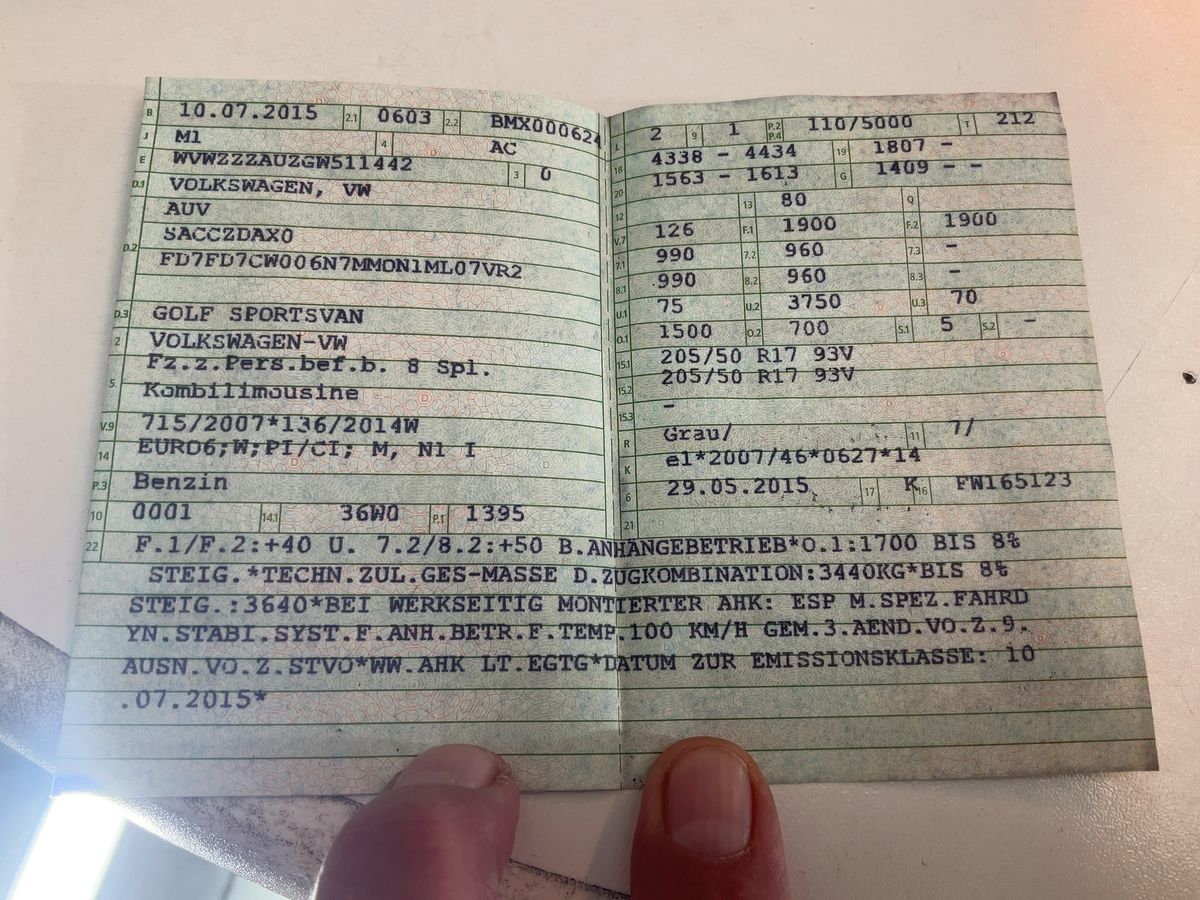 B 10.07.2015 2.1 0603 2.2 BMX000624
J M1 4 AC
E WVWZZZAUZGW511442 3 0
D.1 VOLKSWAGEN, VW
AUV
D.2 SACCZDAX0
FD7FD7CW006N7MMON1ML07VR2
D.3 GOLF SPORTSVAN
2 VOLKSWAGEN-VW
5 Fz.z.Pers.bef.b. 8 Spl.
Kombilimousine
V.9 715/2007*136/2014W
14 EURO6;W;PI/CI; M, N1 I
P.3 Benzin
10 0001 14.1 36W0 P.1 1395
L 2 9 1 P.2 P.4 110/5000 T 212
18 4338 - 4434 19 1807 -
20 1563 - 1613 G 1409 - -
12 13 80 Q
V.7 126 F.1 1900 F.2 1900
7.1 990 7.2 960 7.3 -
8.1 990 8.2 960 8.3 -
U.1 75 U.2 3750 U.3 70
O.1 1500 O.2 700 S.1 5 S.2 -
15.1 205/50 R17 93V
15.2 205/50 R17 93V
15.3 -
R Grau/ 11 7/
K e1*2007/46*0627*14
6 29.05.2015 17 K 16 FW165123
21
22 F.1/F.2:+40 U. 7.2/8.2:+50 B.ANHÄNGEBETRIEB*O.1:1700 BIS 8%
STEIG.*TECHN.ZUL.GES-MASSE D.ZUGKOMBINATION:3440KG*BIS 8%
STEIG.:3640*BEI WERKSEITIG MONTIERTER AHK: ESP M.SPEZ.FAHRD
YN.STABI.SYST.F.ANH.BETR.F.TEMP.100 KM/H GEM.3.AEND.VO.Z.9.
AUSN.VO.Z.STVO*WW.AHK LT.EGTG*DATUM ZUR EMISSIONSKLASSE: 10
.07.2015*